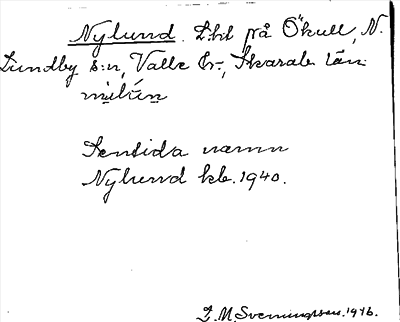 Nylund. Lht på Ökull, N.
Lundby s:n, Valle hd, Skarab. län
Sentida namn
Nylund kb. 1940.
I. M. Svenningsson. 1946.